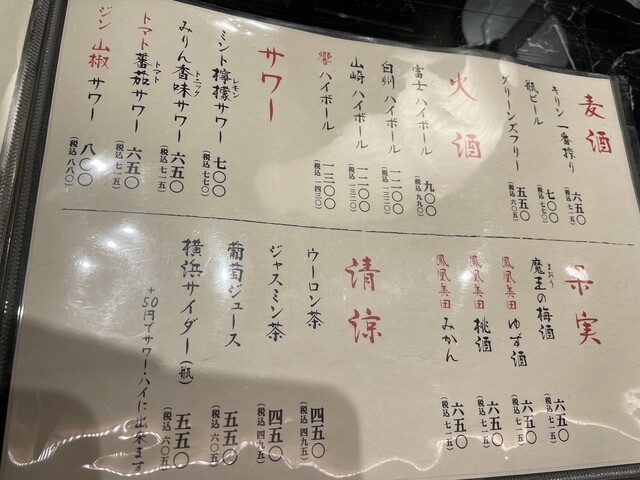 麦酒
キリン 一番搾り 六五〇
(税込 七一五)
瓶ビール 七〇〇
(税込 七七〇)
グリーンズフリー 五五〇
(税込 六〇五)
火酒
富士ハイボール 九〇〇
(税込 九九〇)
白州ハイボール 一二〇〇
(税込 一三二〇)
山崎ハイボール 一二〇〇
(税込 一三二〇)
響ハイボール 一三〇〇
(税込 一四三〇)
サワー
ミント檸檬サワー 七〇〇
レモン
(税込 七七〇)
みりん香味サワー 六五〇
トニック
(税込 七一五)
トマト蕃茄サワー 六五〇
トマト
(税込 七一五)
ジン山椒サワー 八〇〇
(税込 八八〇)
果実
魔王の梅酒 六五〇
まおう
(税込 七一五)
鳳凰美田 ゆず酒 六五〇
(税込 七一五)
鳳凰美田 桃酒 六五〇
(税込 七一五)
鳳凰美田 みかん 六五〇
(税込 七一五)
清涼
ウーロン茶 四五〇
(税込 四九五)
ジャスミン茶 四五〇
(税込 四九五)
葡萄ジュース 五五〇
(税込 六〇五)
横浜サイダー(瓶) 五五〇
(税込 六〇五)
+50円でサワー・ハイに出来ます